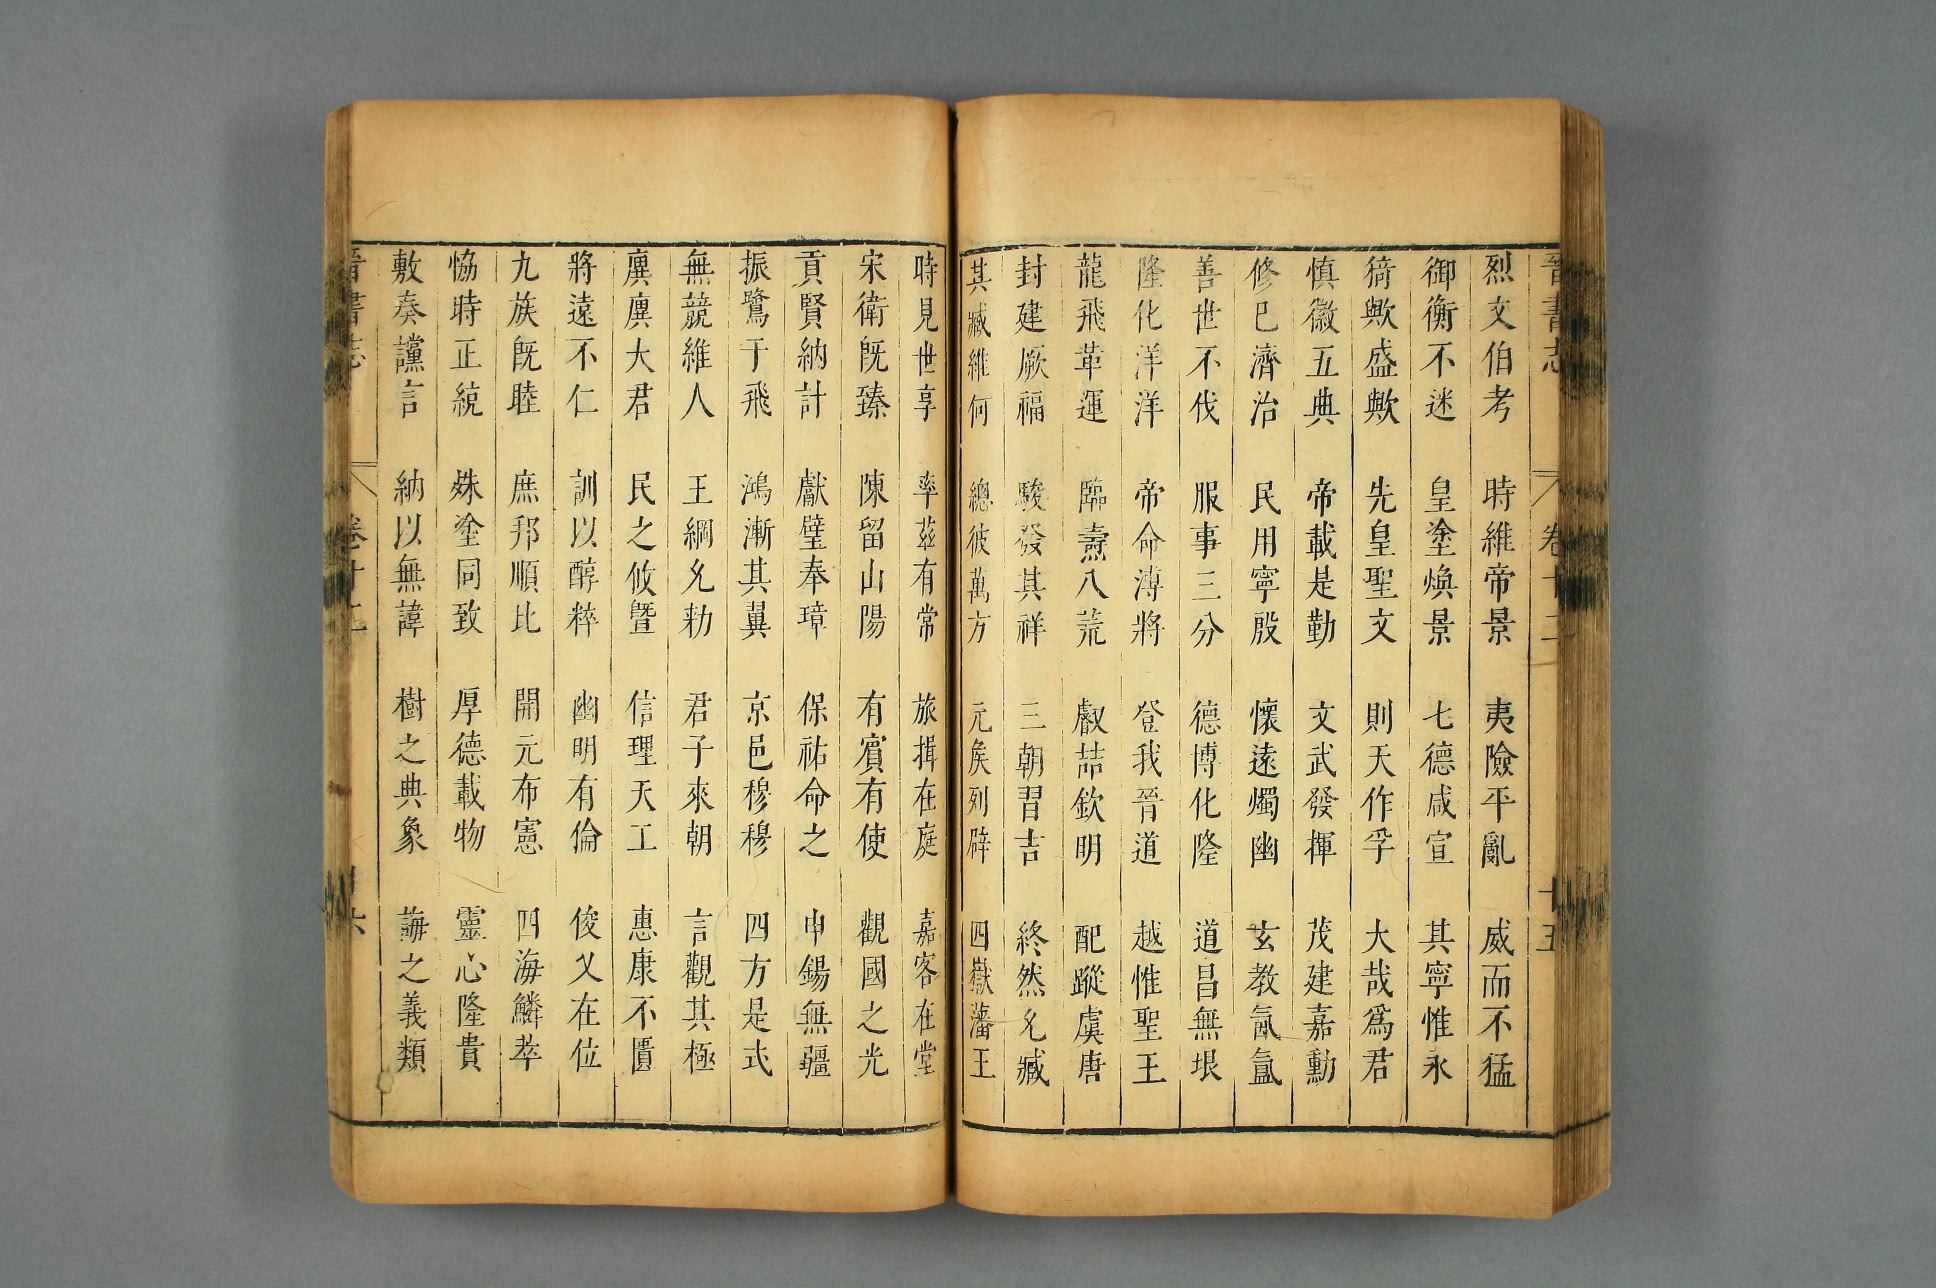 晉書志 卷十二 十五
烈文伯考 時維帝景 夷險平亂 威而不猛
御衡不迷 皇塗煥景 七德咸宣 其寧惟永
猗歟盛歟 先皇聖文 則天作孚 大哉爲君
慎徽五典 帝載是勤 文武發揮 茂建嘉勳
修已濟治 民用寧殷 懷遠燭幽 玄教氤氳
善世不伐 服事三分 德博化隆 道昌無垠
隆化洋洋 帝命溥將 登我晉道 越惟聖王
龍飛革運 臨燾八荒 叡喆欽明 配蹤虞唐
封建厥福 駿發其祥 三朝習吉 終然允臧
其臧維何 總彼萬方 元矦列辟 四嶽藩王
時見世享 率茲有常 旅揖在庭 嘉客在堂
宋衛旣臻 陳留山陽 有賓有使 觀國之光
貢賢納計 獻璧奉璋 保祐命之 申錫無疆
振鷺于飛 鴻漸其翼 京邑穆穆 四方是式
無競維人 王綱允勑 君子來朝 言觀其極
廙廙大君 民之攸曁 信理天工 惠康不匱
將遠不仁 訓以醇粹 幽明有倫 俊乂在位
九族旣睦 庶邦順比 開元布憲 四海鱗萃
恊時正統 殊塗同致 厚德載物 靈心隆貴
敷奏讜言 納以無諱 樹之典象 誨之義類
晉書志 卷十二 十六